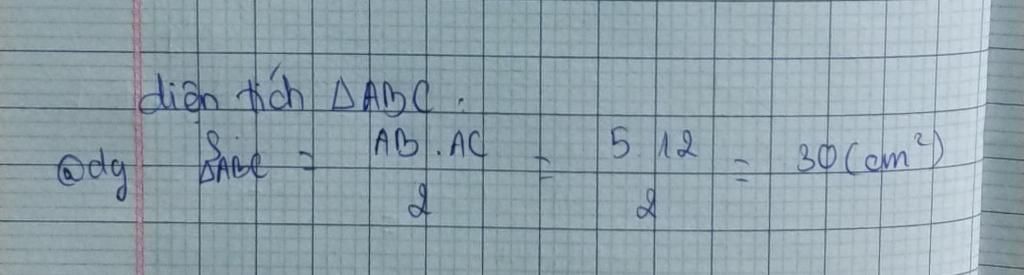 diện tích ΔABC :
@dg SΔABC = AB.AC / 2 = 5.12 / 2 = 30 (cm²)